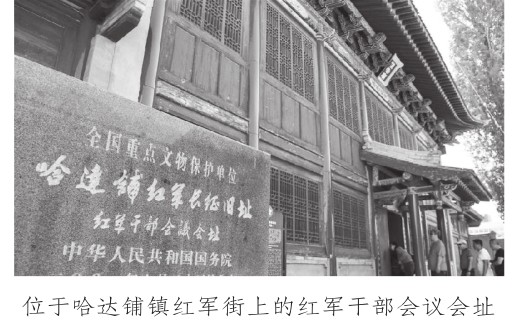 全国重点文物保护单位
哈达铺红军长征旧址
红军干部会議会址
中华人民共和国国务院
位于哈达铺镇红军街上的红军干部会议会址